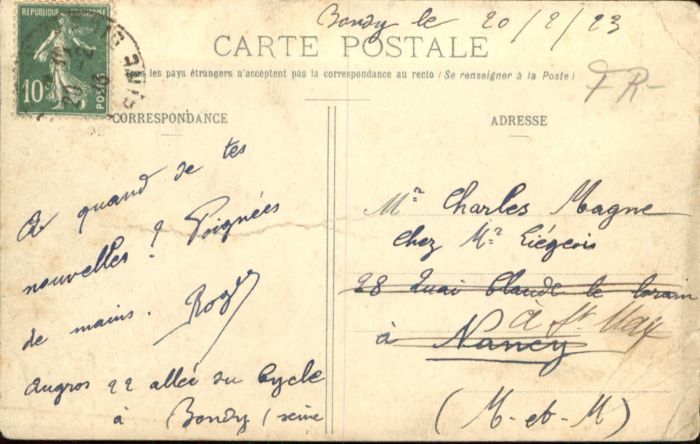 Bondy le 20/2/23
CARTE POSTALE
les pays étrangers n'acceptent pas la correspondance au recto (Se renseigner à la Poste)
REPUBLIQUE FRANÇAISE
10c
POSTES
FR-
CORRESPONDANCE
A quand de tes
nouvelles ? Poignées
de mains. Roger
Augros 22 allée du Cycle
à Bondy (Seine
ADRESSE
Mr Charles Magne
chez Mr Liégeois
28 Quai Claude le Lorain
à St Max
à Nancy
(M-et-M)